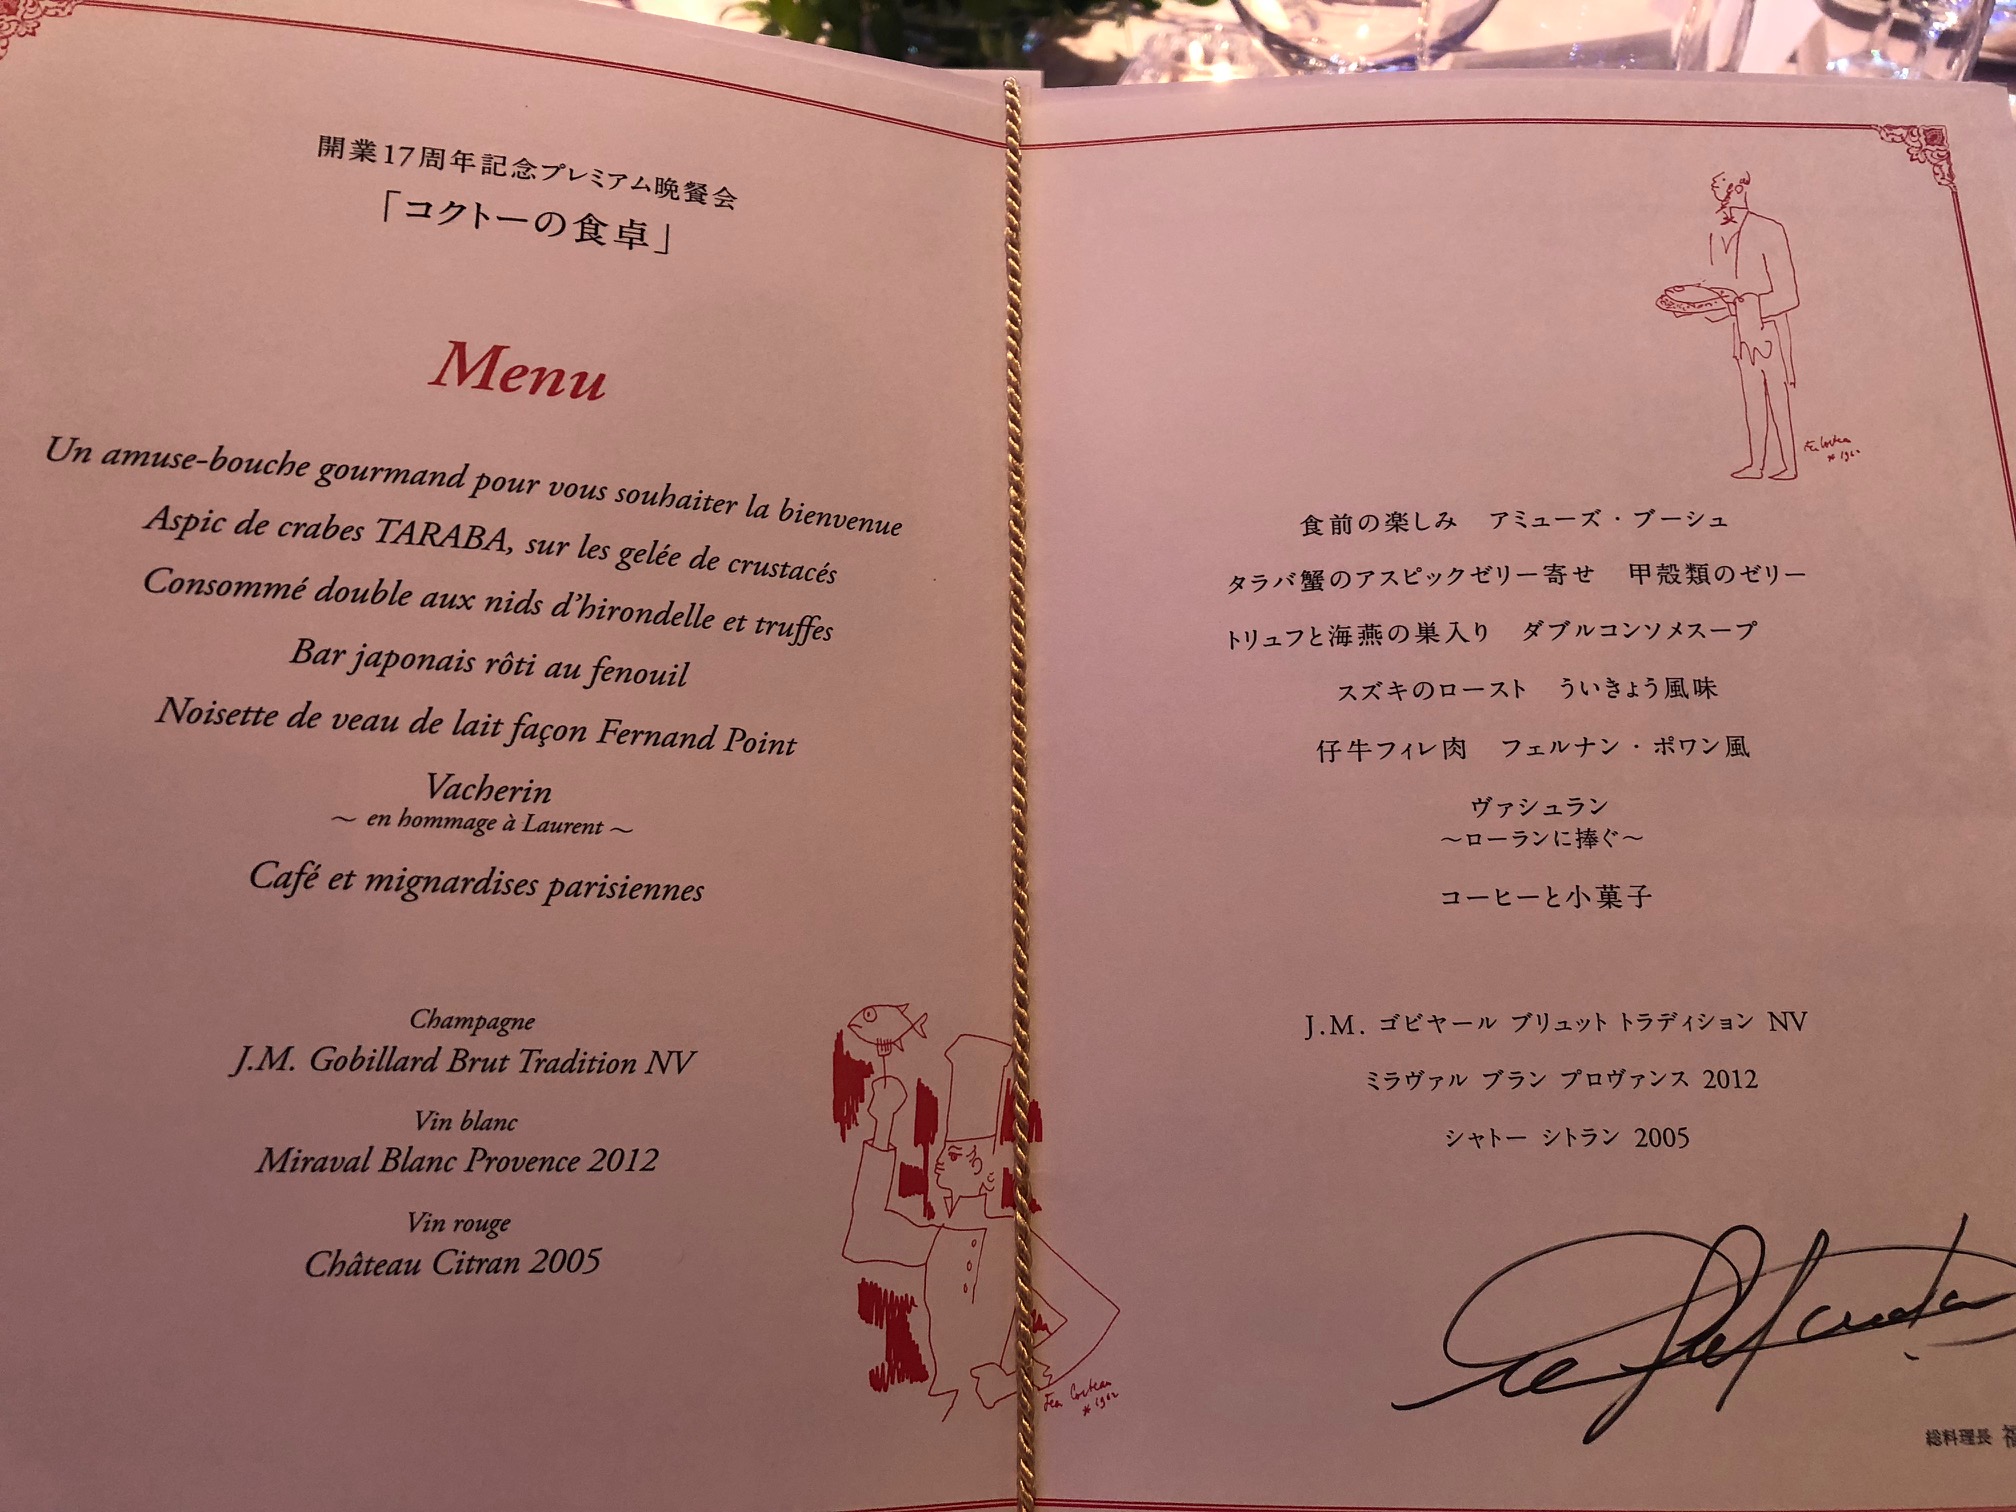 開業17周年記念プレミアム晩餐会
「コクトーの食卓」
Menu
Un amuse-bouche gourmand pour vous souhaiter la bienvenue
Aspic de crabes TARABA, sur les gelée de crustacés
Consommé double aux nids d'hirondelle et truffes
Bar japonais rôti au fenouil
Noisette de veau de lait façon Fernand Point
Vacherin
～ en hommage à Laurent ～
Café et mignardises parisiennes
Champagne
J.M. Gobillard Brut Tradition NV
Vin blanc
Miraval Blanc Provence 2012
Vin rouge
Château Citran 2005
Jean Cocteau
* 1962
* 1960
食前の楽しみ　アミューズ・ブーシュ
タラバ蟹のアスピックゼリー寄せ　甲殻類のゼリー
トリュフと海燕の巣入り　ダブルコンソメスープ
スズキのロースト　ういきょう風味
仔牛フィレ肉　フェルナン・ポワン風
ヴァシュラン
～ローランに捧ぐ～
コーヒーと小菓子
J.M. ゴビヤール ブリュット トラディション NV
ミラヴァル ブラン プロヴァンス 2012
シャトー シトラン 2005
総料理長